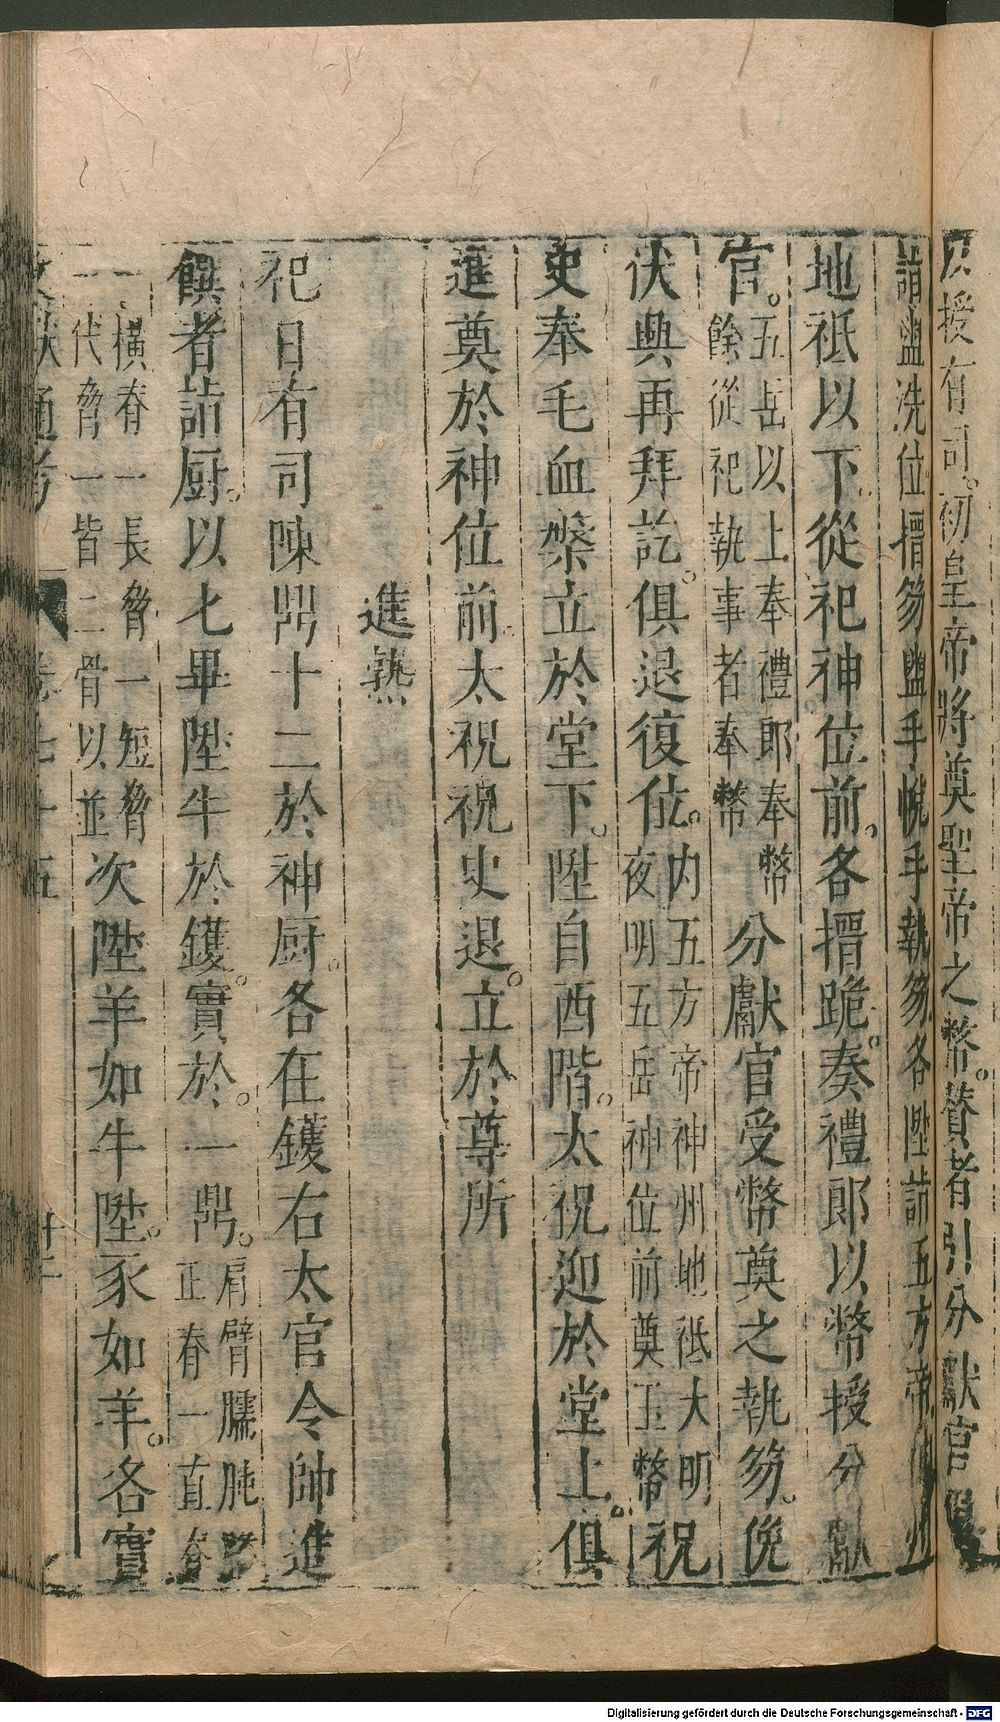 以授有司。初皇帝將奠聖帝之幣。贊者引分獻官俱
詣盥洗位搢笏盥手帨手執笏各陞詣五方帝神州
地祇以下。從祀神位前。各搢跪。奏禮郎以幣授分獻
官。五岳以上奉禮郎奉幣
餘從祀執事者奉幣
分獻官受幣奠之執笏。俛
伏興再拜訖。俱退復位。内五方帝神州地祇大明
夜明五岳神位前奠玉幣
祝
史奉毛血槃立於堂下。陞自西階。太祝迎於堂上。俱
進奠於神位前。太祝祝史退。立於尊所
進熟
祀日有司陳鼎十二於神厨。各在鑊右太官令帥進
饌者詣厨。以匕畢陞牛於鑊。實於。一鼎。肩臂臑肫胳
正脊一直脊
一橫脊一長脅一短脅
一代脅一皆二骨以並
次陞羊如牛陞。豕如羊。各實
文獻通考
卷七十五
Digitalisierung gefördert durch die Deutsche Forschungsgemeinschaft - DFG